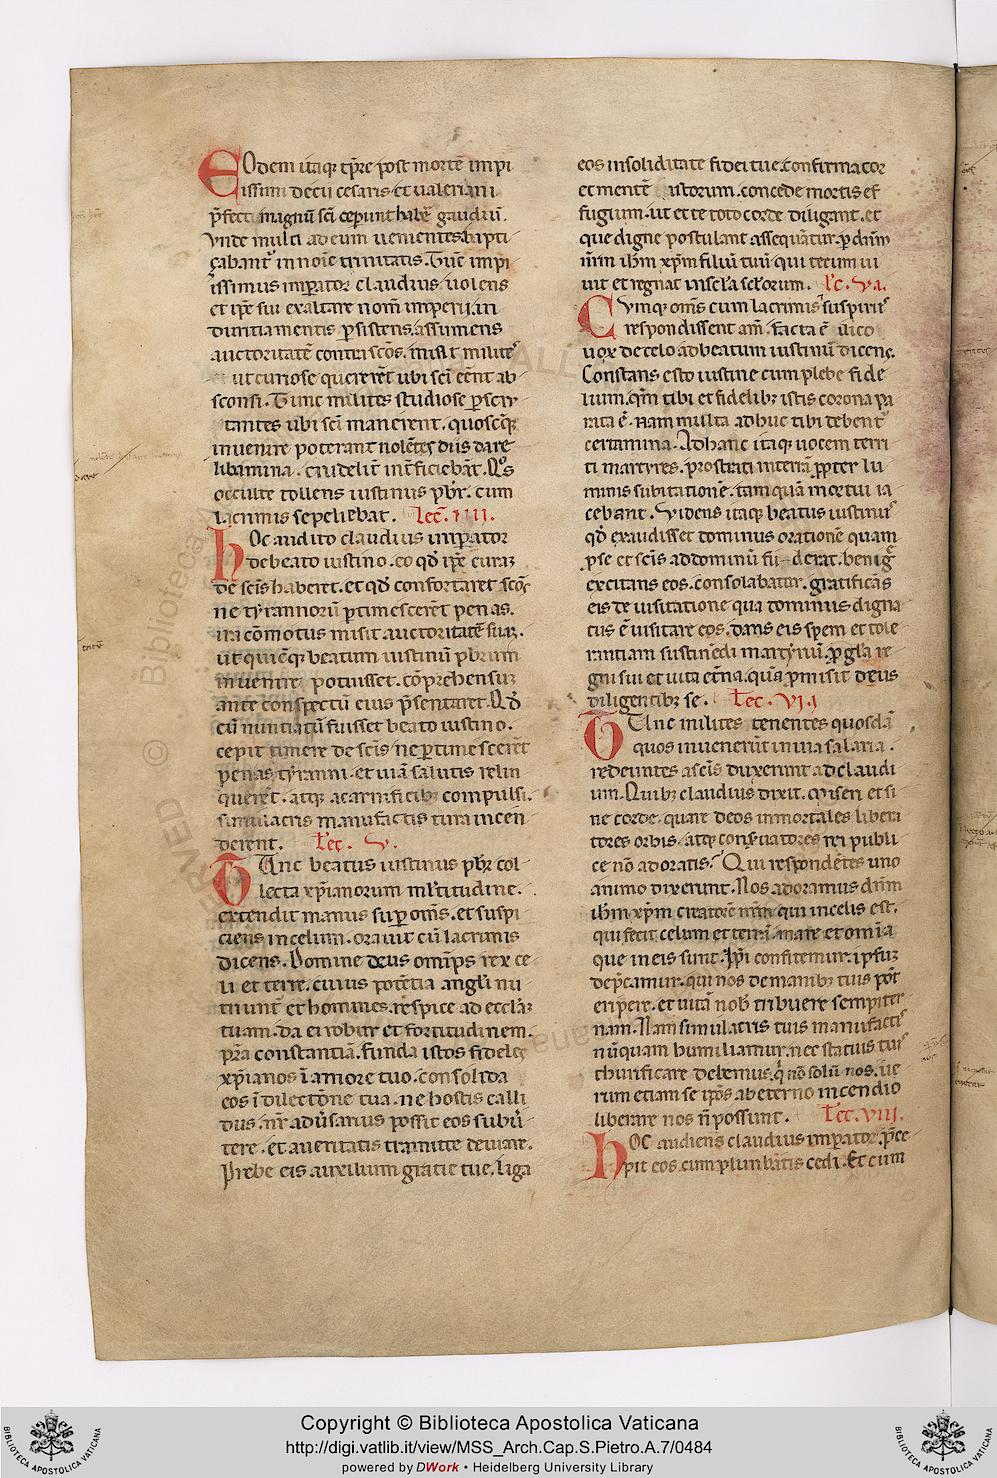 EOdem itaq; tp̄re post mortē impi
issimi decii cesaris et ualeriani
p̄fecti magnū sc̄i ceperunt habē gaudiū.
Vnde multi ad eum uenientes bapti
çabant᷑ in noīe trinitatis. Tūc impi
issimus imperator claudius uolens
et ip̄e sui exaltare nom̄ imperii. in
duritia mentis persistens. assumens
auctoritatē contra sc̄os. misit milites
et ut curiose quererēt ubi sc̄i eēnt ab
sconsi. Tunc milites studiose perscru
tantes ubi sc̄i manerent. quoscūq;
inuenire poterant nolētes diis dare
libamina. crudelit̄ int̄ficiebāt. Quos
occulte tollens iustinus pb̄r. cum
lacrimis sepeliebat. Lec̄. IIII.
hOc audito claudius imperator
de beato iustino. eo qd̄ ip̄e curaꝫ
de sc̄is haberet. et qd̄ confortaret sc̄os
ne tyrannorū pertimescerēt penas.
ira cōmotus misit auctoritatē suaꝫ.
ut quicūq; beatum iustinū pb̄rum
inuenire potuisset. cōprehensuꝫ
ante conspectū eius p̄sentaret. Qd̄
cū nuntiatū fuisset beato iustino.
cepit timere de sc̄is ne pertimescerēt
penas tyranni. et uiā salutis relin
querēt. atq; a carnificibꝫ compulsi.
simulacris manufactis tura incen
derent. Lec̄. V.
TUnc beatus iustinus pb̄r col
lecta xp̄ianorum mltitudine.
extendit manus super om̄s. et suspi
ciens in celum. orauit cū lacrimis
dicens. Domine deus omīps rex ce
li et terre. cuius potētia angli nu
triunt̄ et homines. respice ad eccl̄aꝫ
tuam. da ei robur et fortitudinem.
p̄ra constantiā. funda istos fideles
xp̄ianos ī amore tuo. consolida
eos ī dilectiōne tua. ne hostis calli
dus. nr̄ adūsarius possit eos subū
tere. et a ueritatis tramite deuiare.
Prebe eis auxilium gratie tue. liga
eos in soliditate fidei tue. confirma cor
et mentē istorum. concede mortis ef
fugium. ut et te toto corde diligant. et
que digne postulant assequātur. per dn̄m
nr̄m ih̄m xp̄m filiū tuū qui tecum ui
uit et regnat in secl̄a sclorum. Lc̄. VI.
CVmq; om̄s cum lacrimis et suspiriis
respondissent am̄. facta ē uico
uox de celo ad beatum iustinū dicens.
Constans esto iustine cum plebe fide
lium. qm̄ tibi et fidelibꝫ istis corona pa
rata ē. nam multa adhuc tibi debent᷑
certamina. Ad hanc itaq; uocem terri
ti martyres. prostrati in terrā propter lu
minis subitationē. tamquā mortui ia
cebant. Videns itaq; beatus iustinus
qd̄ exaudisset dominus orationē quam
pro se et sc̄is ad dominū fuderat. benigne
excitans eos. consolabatur. gratificās
eis de uisitatione qua dominus digna
tus ē uisitare eos. dans eis spem et tole
rantiam sustinēdi martyriū. pro gl̄a re
gni sui et uita et̄na. quā promisit deus
diligentibꝫ se. Lec̄. VII
TUnc milites tenentes quosdā
quos inuenerūt in uia salaria.
redeuntes a sc̄is duxerunt ad claudi
um. Quibꝫ claudius dixit. Miseri et si
ne corde. quare deos immortales liberi
tores orbis. atq; conseruatores rei publi
ce nō adoratis? Qui respondētes uno
animo dixerunt. Nos adoramus dn̄m
ih̄m xp̄m creatorē nr̄m qui in celis est.
qui fecit celum et terrā. mare et omīa
que in eis sunt. Ipsi confitemur. ipsuꝫ
dep̄camur. qui nos de manibꝫ tuis pōt
eripere. et uitā nob̄ tribuere sempiter
nam. Nam simulacris tuis manufactis
nūquam humiliamur. nec statuis tuis
thurificare debemus. q̄ nō solū nos. ue
rum etiam se ip̄os ab eterno incendio
liberare nos n̄ possunt. Lec̄. VIII.
hOc audiens claudius imperator. p̄ce
pit eos. cum plumbatis cedi. Et cum
Copyright © Biblioteca Apostolica Vaticana
http://digi.vatlib.it/view/MSS_Arch.Cap.S.Pietro.A.7/0484
powered by DWork • Heidelberg University Library
BIBLIOTECA APOSTOLICA VATICANA
BIBLIOTECA APOSTOLICA VATICANA